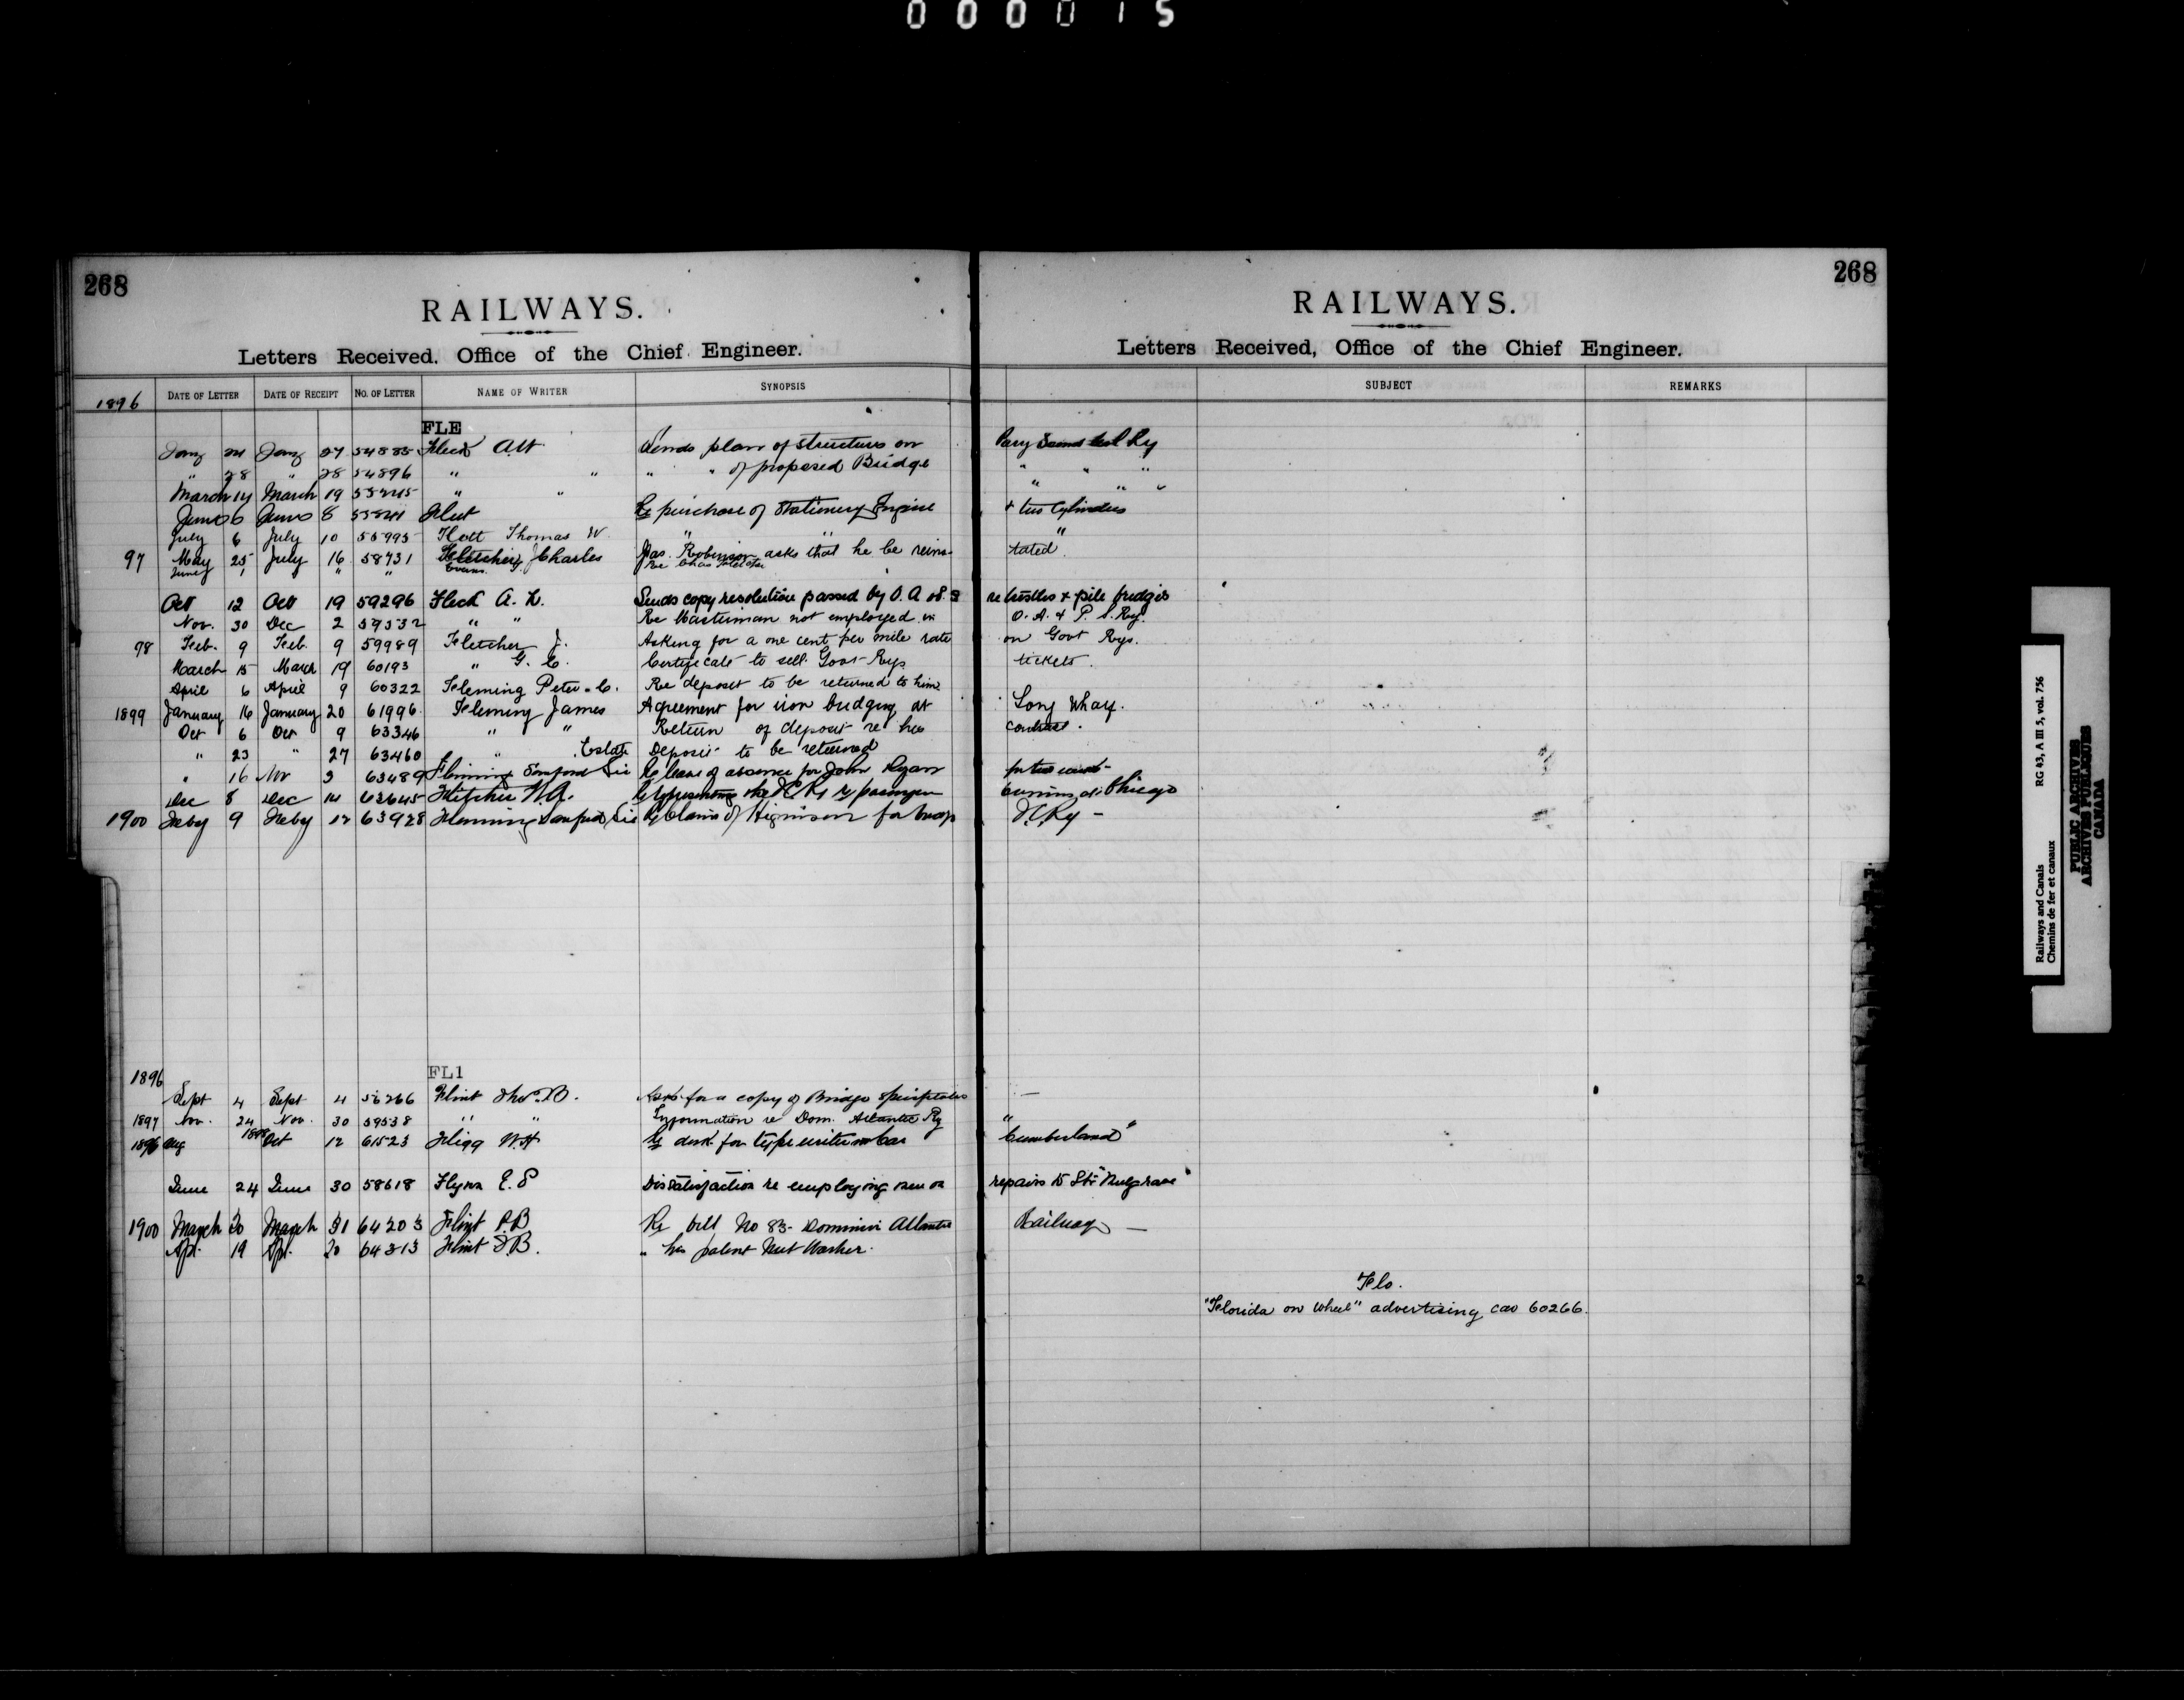 000015
268
RAILWAYS.
Letters Received, Office of the Chief Engineer.
268
RAILWAYS.
Letters Received, Office of the Chief Engineer.
1896 DATE OF LETTER DATE OF RECEIPT NO. OF LETTER NAME OF WRITER SYNOPSIS SUBJECT REMARKS
FLE
Jany 24 Jany 27 54885 Fleck Sends plan of structure on Parry Sound Ry
" 28 " 28 54896 " " " " of proposed Bridge " " "
March 14 March 19 " " " " "
June 6 June 8 Re purchase of Stationery Engine + two Cylinders
July 6 July 10 55995 Thomas W. " " "
97 May 25 July 16 58731 Fletcher Charles Jas. Robinson asks that he be reins- tated.
June 1 " " " Evans. Re Chas Fletcher
Oct 12 Oct 19 59296 Fleck A. Sends copy resolution passed by O. A. & P. S re trestles & pile bridges
Nov. 30 Dec 2 59532 " " Re Masterman not employed in O. A. & P. S. Ry.
98 Feb. 9 Feb. 9 59989 Fletcher J. Asking for a one cent per mile rate on Govt Rys.
March 15 March 19 60193 " G. C. Certificate to sell Govt Rys tickets.
April 6 April 9 60322 Fleming Peter C. Re deposit to be returned to him
1899 January 16 January 20 61996 Fleming James Agreement for iron bridging at Long Wharf.
Oct 6 Oct 9 63346 " " Return of deposit re his contract.
" 23 " 27 63460 " Estate Deposit to be returned
" 16 Nov 3 63489 Fleming Sanford Sir Re leave of absence for John Ryan
Dec 8 Dec 14 63645 Fletcher W.A. Re representing the I.C. Ry passenger Chicago
1900 Feby 9 Feby 12 63928 Fleming Sanford Sir Re Claim of Higinson for I.C.Ry -
1896 FL1
Sept 4 Sept 4 56266 Flint Thos. B. Asks for a copy of Bridge specifications —
1897 Nov. 24 Nov. 30 59538 " " Information re Dom. Atlantic Ry
1896 Aug 1898 Oct 12 61523 Fligg W.H Re desk for typewriter on Car "Cumberland"
June 24 June 30 58618 Flynn E. P Dissatisfaction re employing men on repairs to Str "Mulgrave"
1900 March 30 March 31 64203 Flint Re bill No 83- Dominion Atlantic Railway —
Apl. 19 Apl. 20 64313 Flint " his patent Nut Washer.
Flo.
"Florida on Wheel" advertising car 60266.
Railways and Canals RG 43, A III 5, vol. 756
Chemins de fer et canaux
PUBLIC ARCHIVES
ARCHIVES PUBLIQUES
CANADA